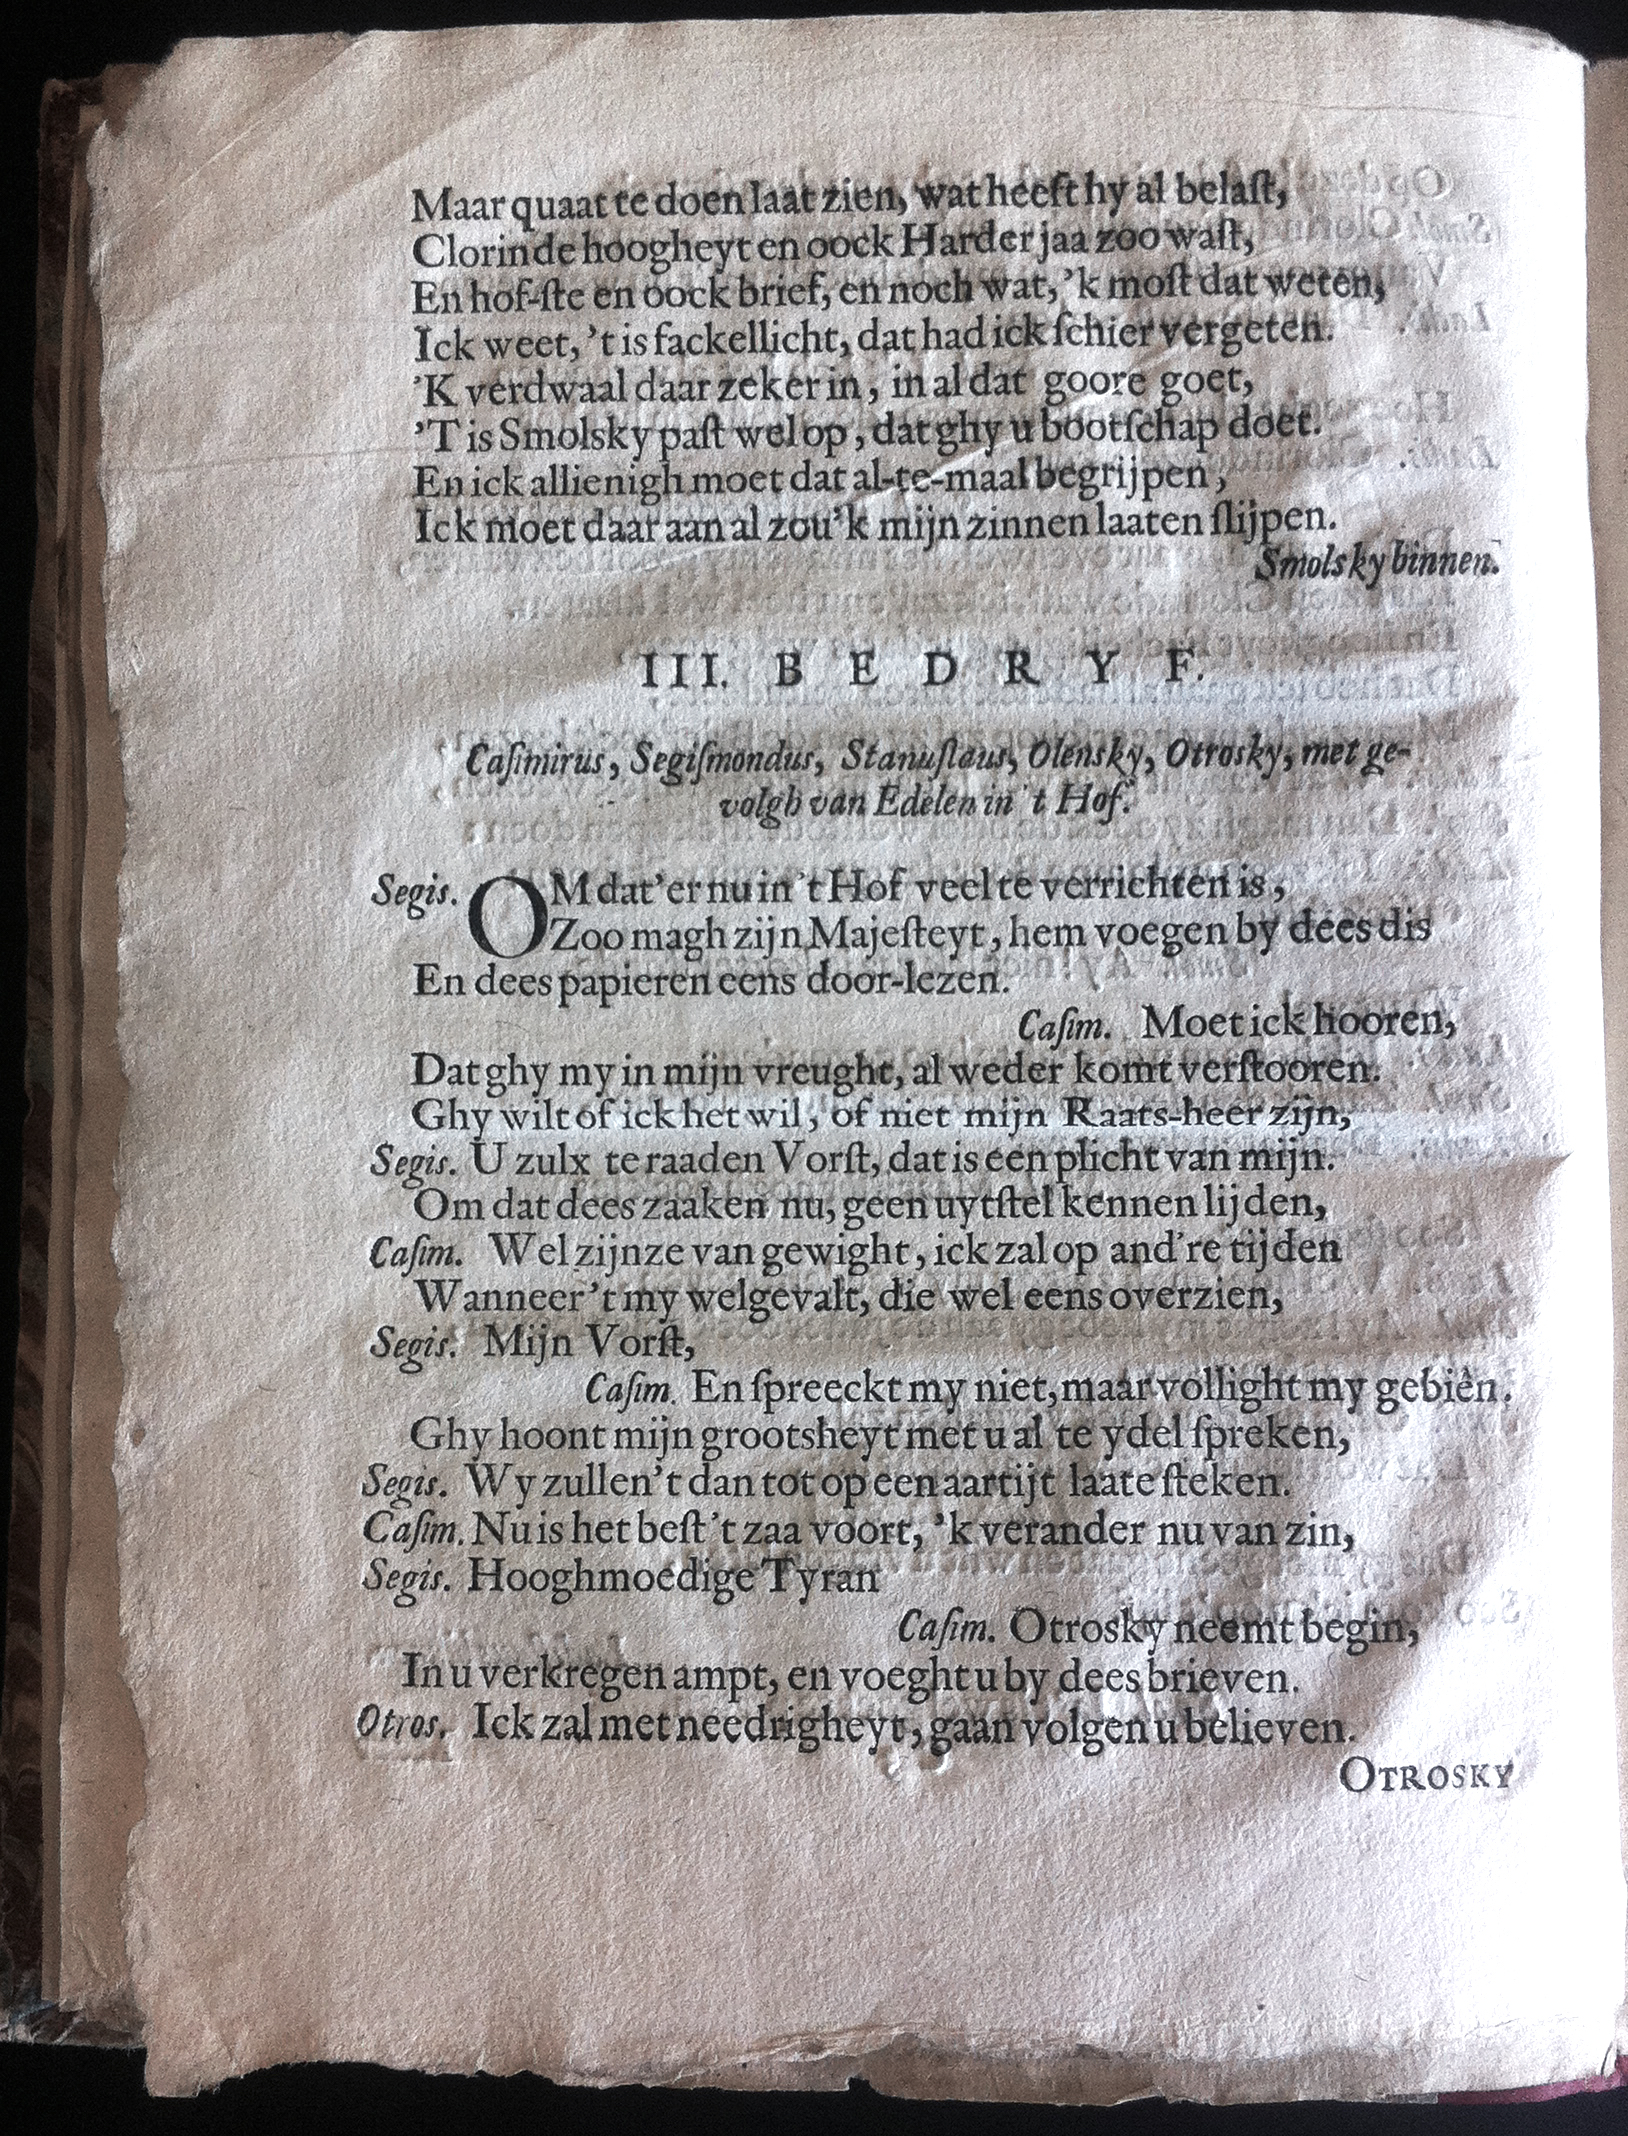 Maar quaat te doen laat zien, wat heeft hy al belaſt,
Clorinde hoogheyt en oock Harder jaa zoo waſt,
En hof-ſte en oock brief, en noch wat, 'k moſt dat weten,
Ick weet, 't is fackellicht, dat had ick ſchier vergeten.
'K verdwaal daar zeker in, in al dat goore goet,
'T is Smolsky paſt wel op, dat ghy u bootſchap doet.
En ick allienigh moet dat al-te-maal begrijpen,
Ick moet daar aan al zou'k mijn zinnen laaten ſlijpen.
Smolsky binnen.
III. BEDRYF.
Caſimirus, Segiſmondus, Stanuſlaus, Olensky, Otrosky, met ge-
volgh van Edelen in 't Hof.
Segis. OM dat'er nu in 't Hof veel te verrichten is,
Zoo magh zijn Majeſteyt, hem voegen by dees dis
En dees papieren eens door-lezen.
Caſim. Moet ick hooren,
Dat ghy my in mijn vreught, al weder komt verſtooren.
Ghy wilt of ick het wil, of niet mijn Raats-heer zijn,
Segis. U zulx te raaden Vorſt, dat is een plicht van mijn.
Om dat dees zaaken nu, geen uytſtel kennen lijden,
Caſim. Wel zijnze van gewight, ick zal op and're tijden
Wanneer't my welgevalt, die wel eens overzien,
Segis. Mijn Vorſt,
Caſim. En ſpreeckt my niet, maar vollight my gebiên.
Ghy hoont mijn grootsheyt met u al te ydel ſpreken,
Segis. Wy zullen't dan tot op een aartijt laate ſteken.
Caſim. Nu is het beſt 't zaa voort, 'k verander nu van zin,
Segis. Hooghmoedige Tyran
Caſim. Otrosky neemt begin,
In u verkregen ampt, en voeght u by dees brieven.
Otros. Ick zal met needrigheyt, gaan volgen u believen.
OTROSKY